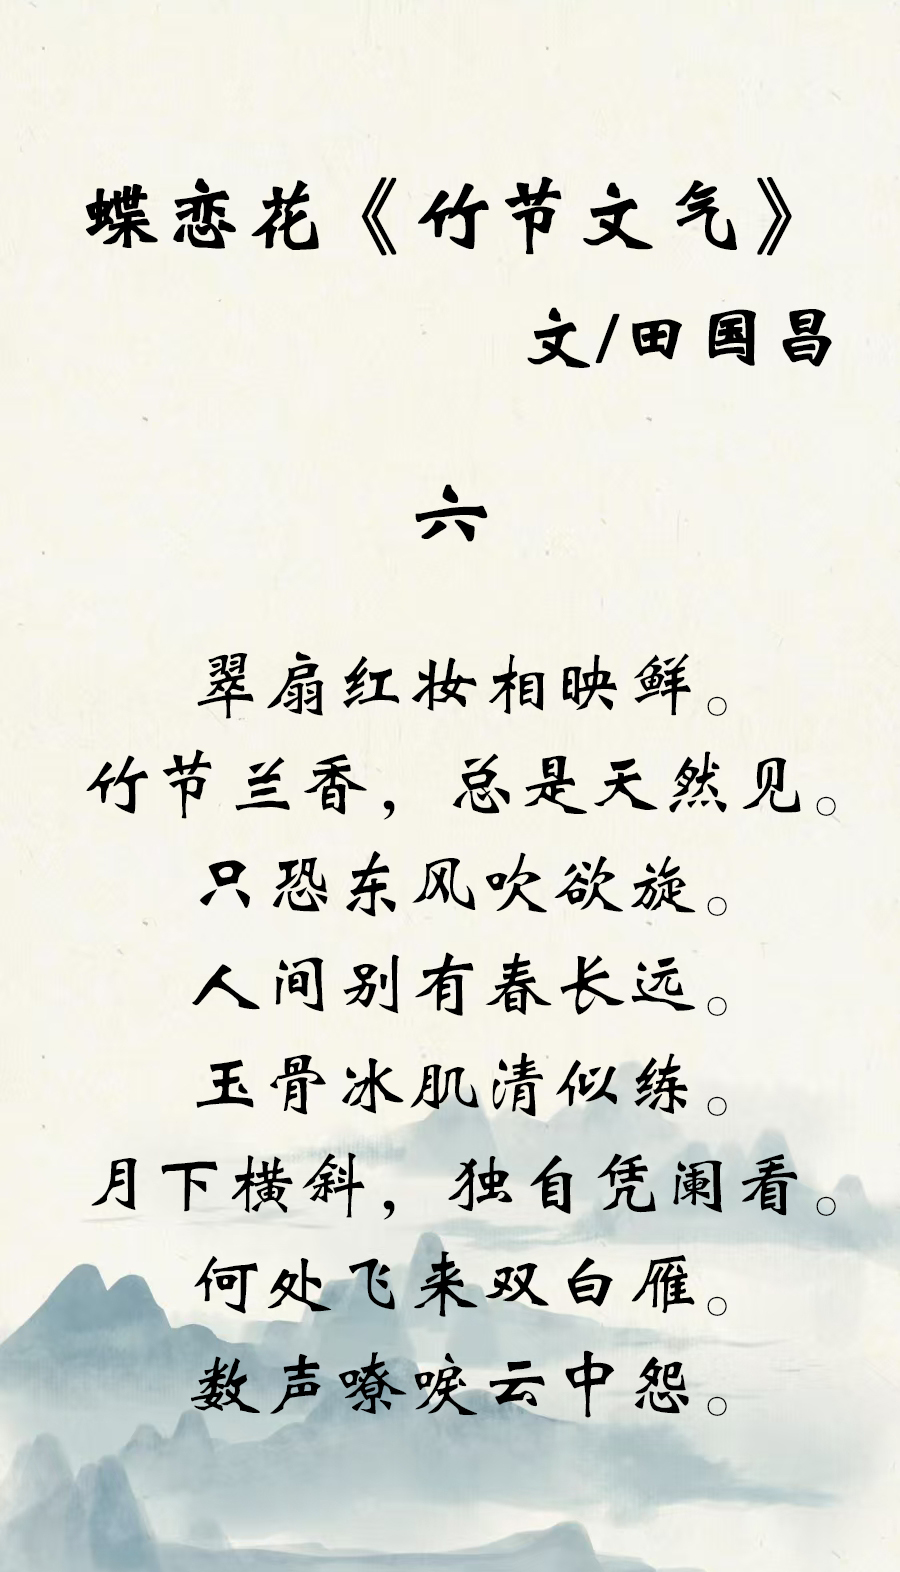 蝶恋花《竹节文气》
文/田国昌
六
翠扇红妆相映鲜。
竹节兰香，总是天然见。
只恐东风吹欲旋。
人间别有春长远。
玉骨冰肌清似练。
月下横斜，独自凭阑看。
何处飞来双白雁。
数声嘹唳云中怨。